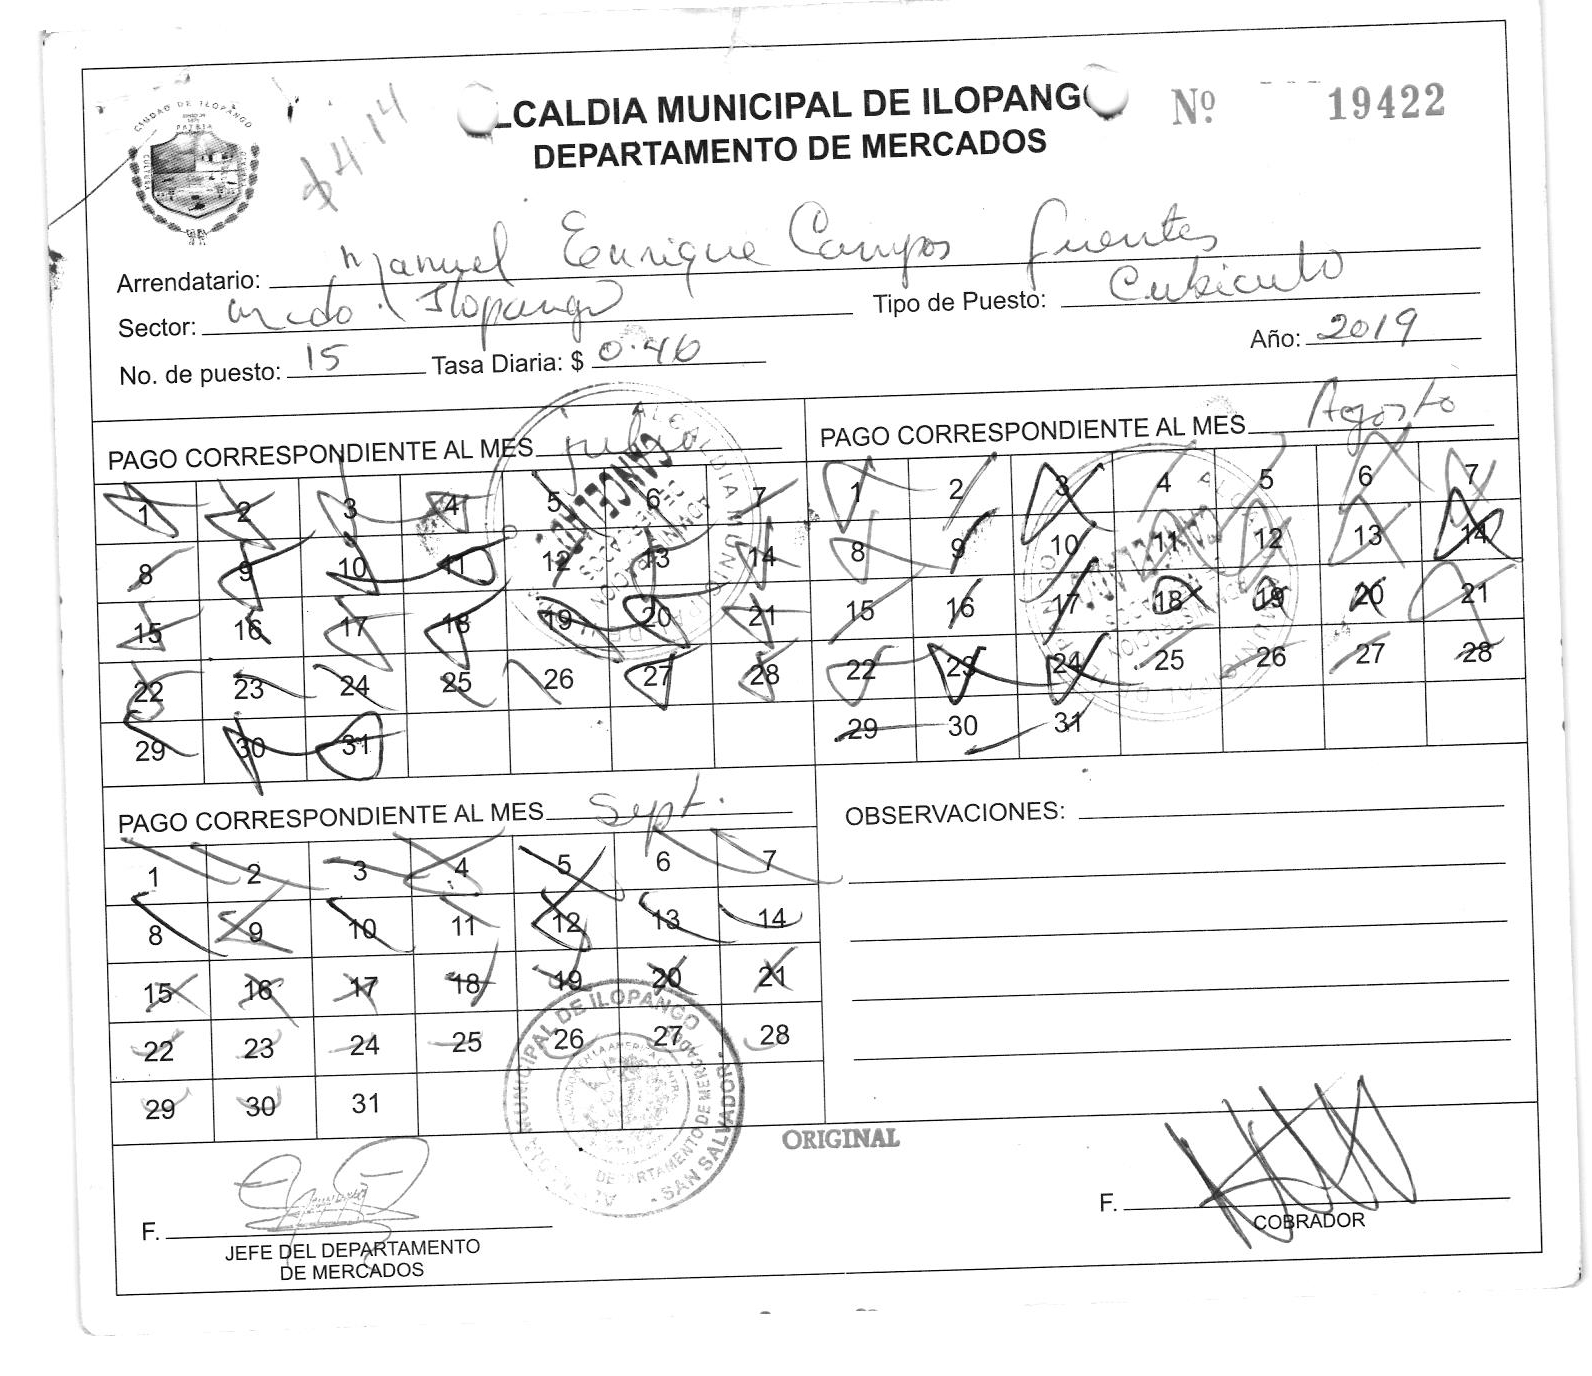 CIUDAD DE ILOPANGO
PATRIA
CULTURA
$4.14
LCALDIA MUNICIPAL DE ILOPANGO
DEPARTAMENTO DE MERCADOS
Nº 19422
Arrendatario: Manuel Enrique Campos Fuentes
Sector: Mcdo. Ilopango Tipo de Puesto: Cubiculo
No. de puesto: 15 Tasa Diaria: $ 0.46 Año: 2019
PAGO CORRESPONDIENTE AL MES julio
1 2 3 4 5 6 7
8 9 10 11 12 13 14
15 16 17 18 19 20 21
22 23 24 25 26 27 28
29 30 31
CANCELADO
ALCALDIA MUNICIPAL DE
PAGO CORRESPONDIENTE AL MES Agosto
1 2 3 4 5 6 7
8 9 10 11 12 13 14
15 16 17 18 19 20 21
22 23 24 25 26 27 28
29 30 31
PAGO CORRESPONDIENTE AL MES Sept.
1 2 3 4 5 6 7
8 9 10 11 12 13 14
15 16 17 18 19 20 21
22 23 24 25 26 27 28
29 30 31
OBSERVACIONES:
ALCALDIA MUNICIPAL DE ILOPANGO
DEPARTAMENTO DE MERCADOS
SAN SALVADOR
ORIGINAL
F.
JEFE DEL DEPARTAMENTO
DE MERCADOS
F.
COBRADOR